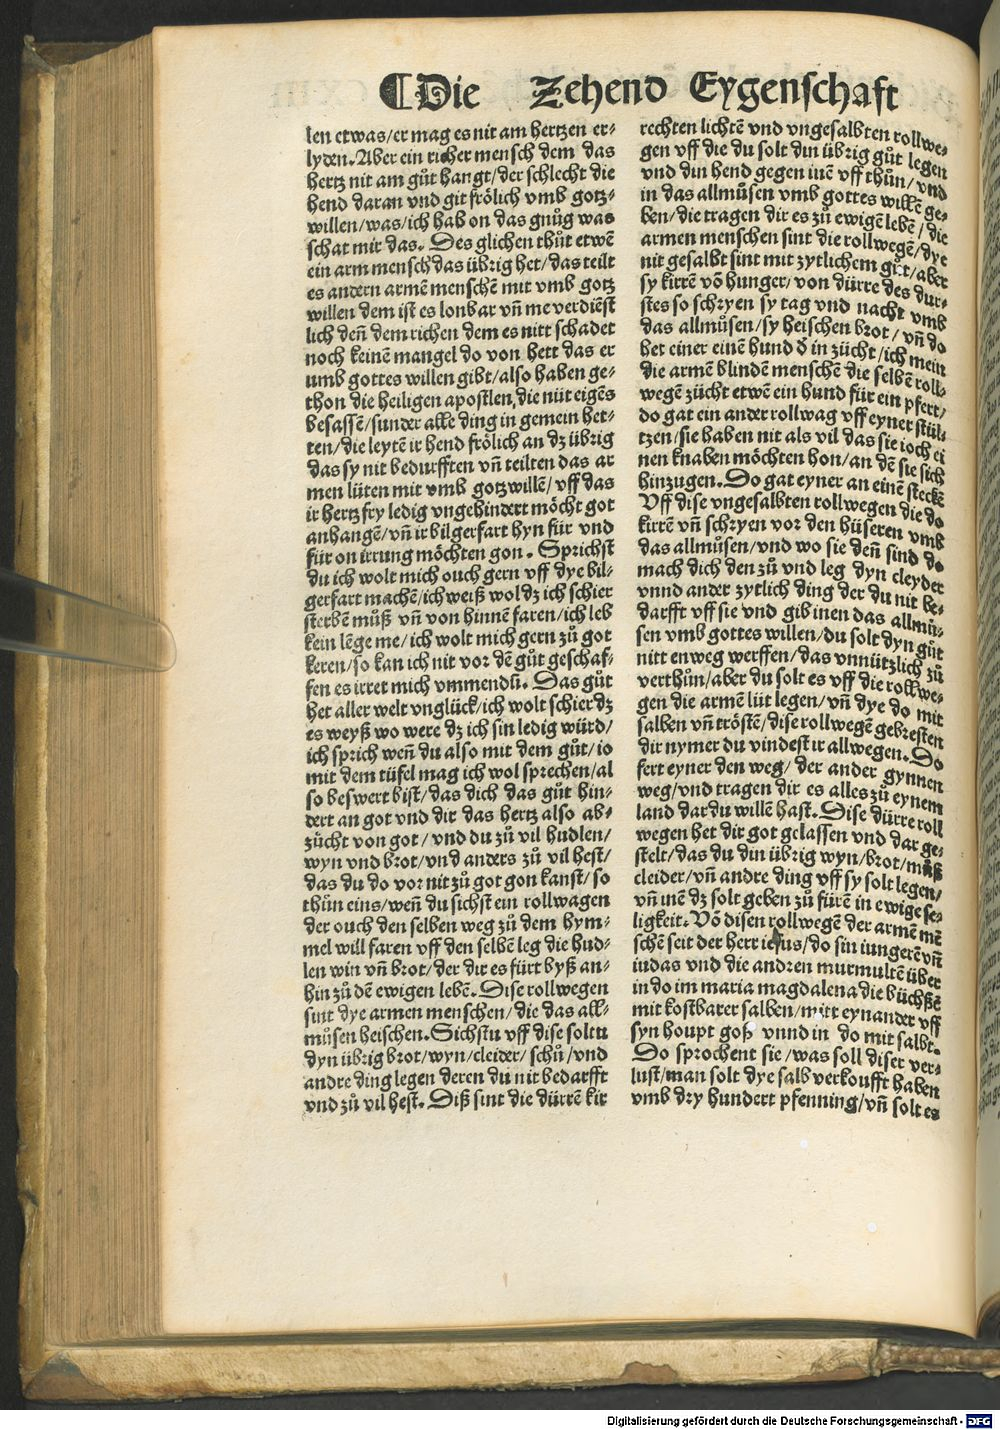 ¶Die Zehend Eygenschaft
len etwas/er mag es nit am hertzen er⸗
lyden. Aber ein richer mensch dem das
hertz nit am gůt hangt/der schlecht die
hend daran vnd git frölich vmb gotz⸗
willen/was/ich hab on das gnůg was
schat mir das. Des glichen thůt etwē
ein arm mensch das übrig het/das teilt
es andern armē menschē mit vmb gotz
willen dem ist es lonbar vn̄ me verdiēst
lich den̄ dem richen dem es nitt schadet
noch keinē mangel do von hett das er
umb gottes willen gibt/also haben ge⸗
thon die heiligen apostlen, die nüt eigēs
besassē/sunder alle ding in gemein het⸗
ten/die leytē ir hend frölich an dz übrig
das sy nit bedurfften vn̄ teilten das ar
men lüten mit vmb gotz willē/vff das
ir hertz fry ledig vngehindert möcht got
anhangē/vn̄ ir bilgerfart hyn für vnd
für on irrung möchten gon. Sprichst
du ich wolt mich ouch gern vff dye bil⸗
gerfart machē/ich weiß wol dz ich schier
sterbē můß vn̄ von hinnē faren/ich leb
kein lēge me/ich wolt mich gern zů got
keren/so kan ich nit vor dē gůt geschaf⸗
fen es irret mich vmmendū. Das gůt
het aller welt vnglück/ich wolt schier dz
es weyß wo were dz ich sin ledig würd/
ich sprich wen̄ du also mit dem gůt/io
mit dem tüfel mag ich wol sprechen/al
so beswert bist/das dich das gůt hin⸗
dert an got vnd dir das hertz also ab⸗
zücht von got/vnd du zů vil hudlen/
wyn vnd brot/vnd anders zů vil hest/
das du do vor nit zů got gon kanst/so
thůn eins/wen̄ du sichst ein rollwagen
der ouch den selben weg zů dem hym⸗
mel will faren vff den selbē leg die hud⸗
len win vn̄ brot/der dir es fürt byß an⸗
hin zů dē ewigen lebē. Dise rollwegen
sint dye armen menschen/die das all⸗
můsen heischen. Sichstu vff dise soltu
dyn übrig brot/wyn/cleider/schů/vnd
andre ding legen deren du nit bedarfft
vnd zů vil hest. Diß sint die dürrē kir
rechten lichtē vnd vngesalbten rollwe⸗
gen vff die du solt din übrig gůt legen
vnd din hend gegen inē vff thůn/vnd
in das allmůsen vmb gottes willē ge⸗
ben/die tragen dir es zů ewigē lebē/die
armen menschen sint die rollwegē/dye
nit gesalbt sint mit zytlichem gůt/aber
sy kirrē vō hunger/von dürre des dur⸗
stes so schryen sy tag vnd nacht vmb
das allmůsen/sy heischen brot/vn̄ do
het einer einē hund d̄ in zücht/ich mein
die armē blindē menschē die selbē roll⸗
wegē zücht etwē ein hund für ein pfert/
do gat ein ander rollwag vff eyner stül⸗
tzen/sie haben nit als vil das sie ioch ei
nen knaben möchten hon/an dē sie sich
hinzugen. Do gat eyner an einē steckē
Vff dise vngesalbten rollwegen die do
kirrē vn̄ schryen vor den hüseren vmb
das allmůsen/vnd wo sie den̄ sind do
mach dich den zů vnd leg dyn cleyder
vnnd ander zytlich ding der du nit be⸗
darfft vff sie vnd gib inen das allmů⸗
sen vmb gottes willen/du solt dyn gůt
nitt enweg werffen/das vnnützlich zů
verthůn/aber du solt es vff die rollwe⸗
gen die armē lüt legen/vn̄ dye do mit
salben vn̄ tröstē/dise rollwegē gebresten
dir nymer du vindest ir allwegen. Do
fert eyner den weg/der ander gynnen
weg/vnd tragen dir es alles zů eynem
land dar du willē hast. Dise dürre roll
wegen het dir got gelassen vnd dar ge⸗
stelt/das du din übrig wyn/brot/můß
cleider/vn̄ andre ding vff sy solt legen/
vn̄ inē dz solt geben zů fürē in ewige se⸗
ligkeit. Vō disen rollwegē der armē mē
schē seit der herr iesus/do sin iungerē vn̄
iudas vnd die andren murmultē über
in do im maria magdalena die büchßē
mit kostbarer salben/mitt eynander vff
syn houpt goß vnnd in do mit salbt.
Do sprochent sie/was soll diser ver⸗
lust/man solt dye salb verkoufft haben
vmb dry hundert pfenning/vn̄ solt es
Digitalisierung gefördert durch die Deutsche Forschungsgemeinschaft - DFG